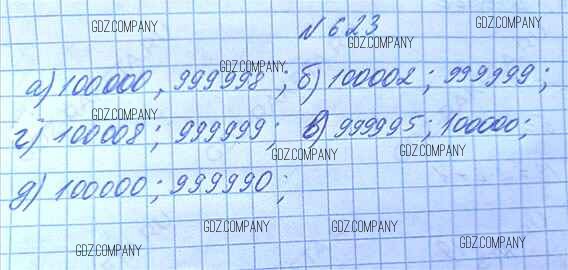 GDZ.COMPANY
N 623 GDZ.COMPANY
GDZ.COMPANY GDZ.COMPANY
GDZ.COMPANY
а) 100000, 999998; б) 100002; 999999;
GDZ.COMPANY
г) 100008; 999999; в) 999995; 100000;
GDZ.COMPANY GDZ.COMPANY
д) 100000; 999990;
GDZ.COMPANY GDZ.COMPANY
GDZ.COMPANY GDZ.COMPANY